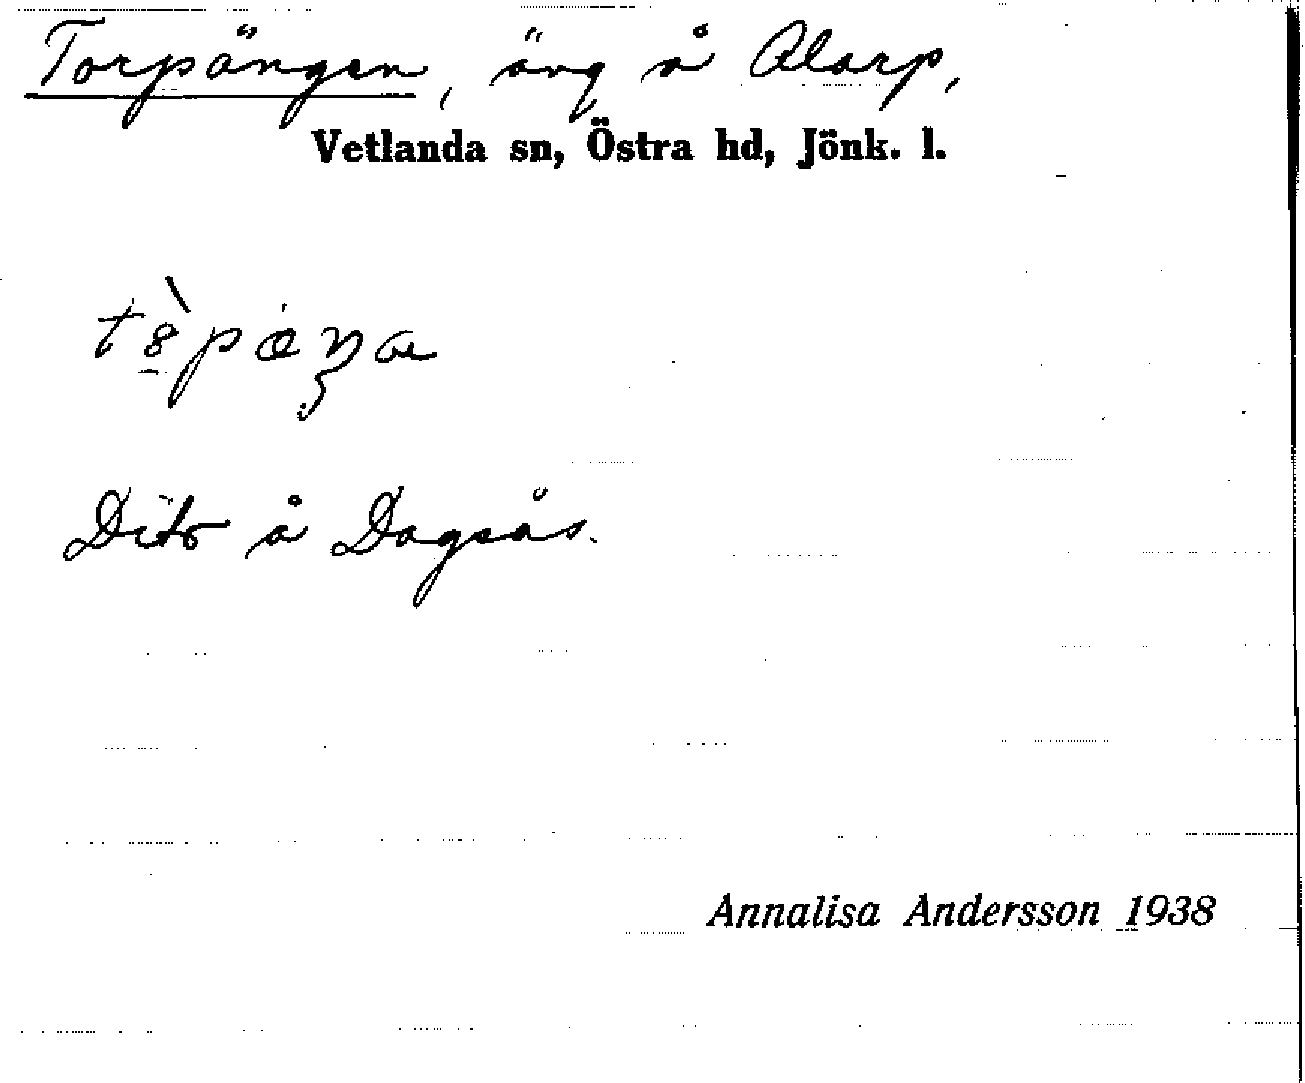 Torpängen, äng å Alarp,
Vetlanda sn, Östra hd, Jönk. l.
Dito å Dagsås.
Annalisa Andersson 1938